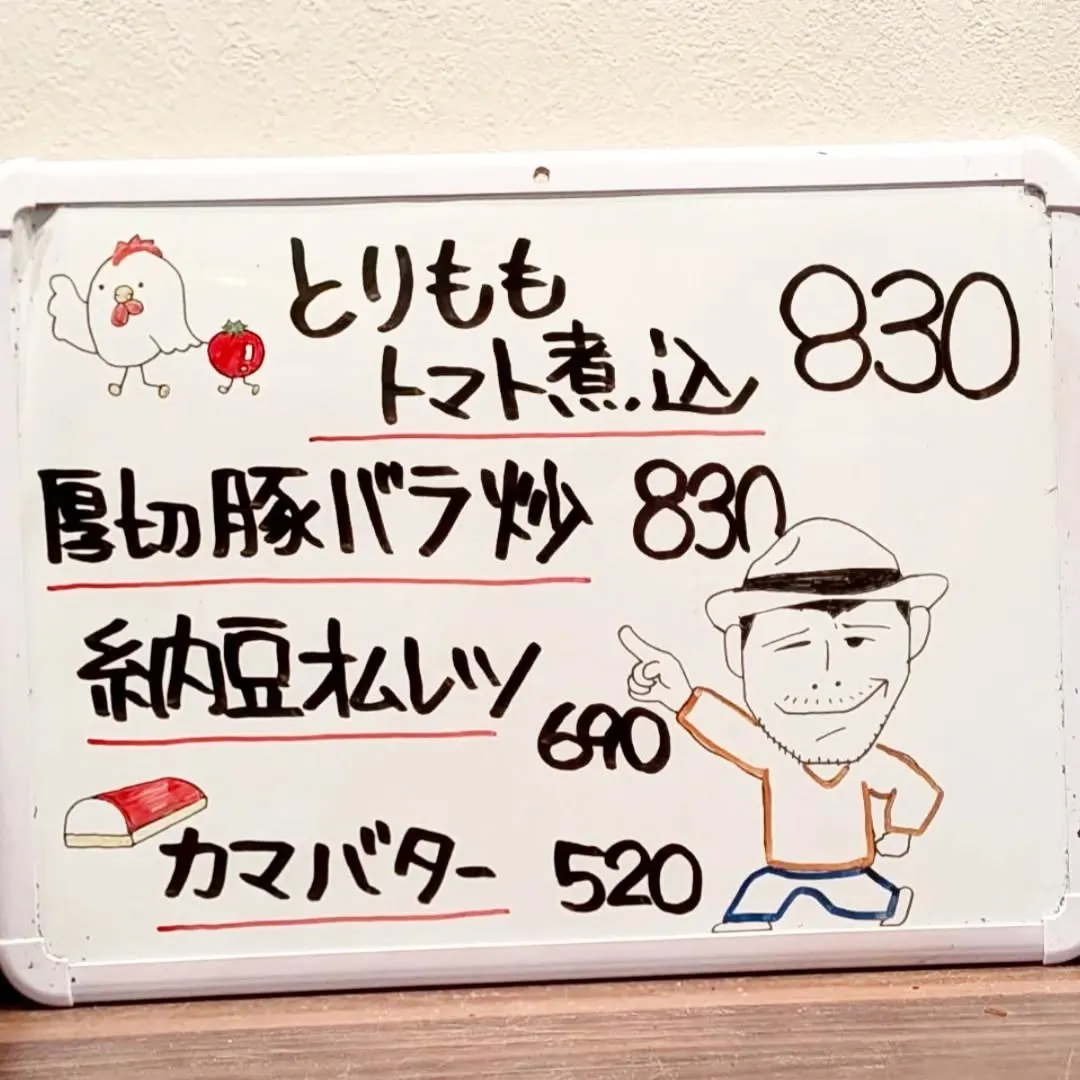 とりもも
トマト煮込 830
厚切豚バラ炒 830
納豆オムレツ
690
カマバター 520